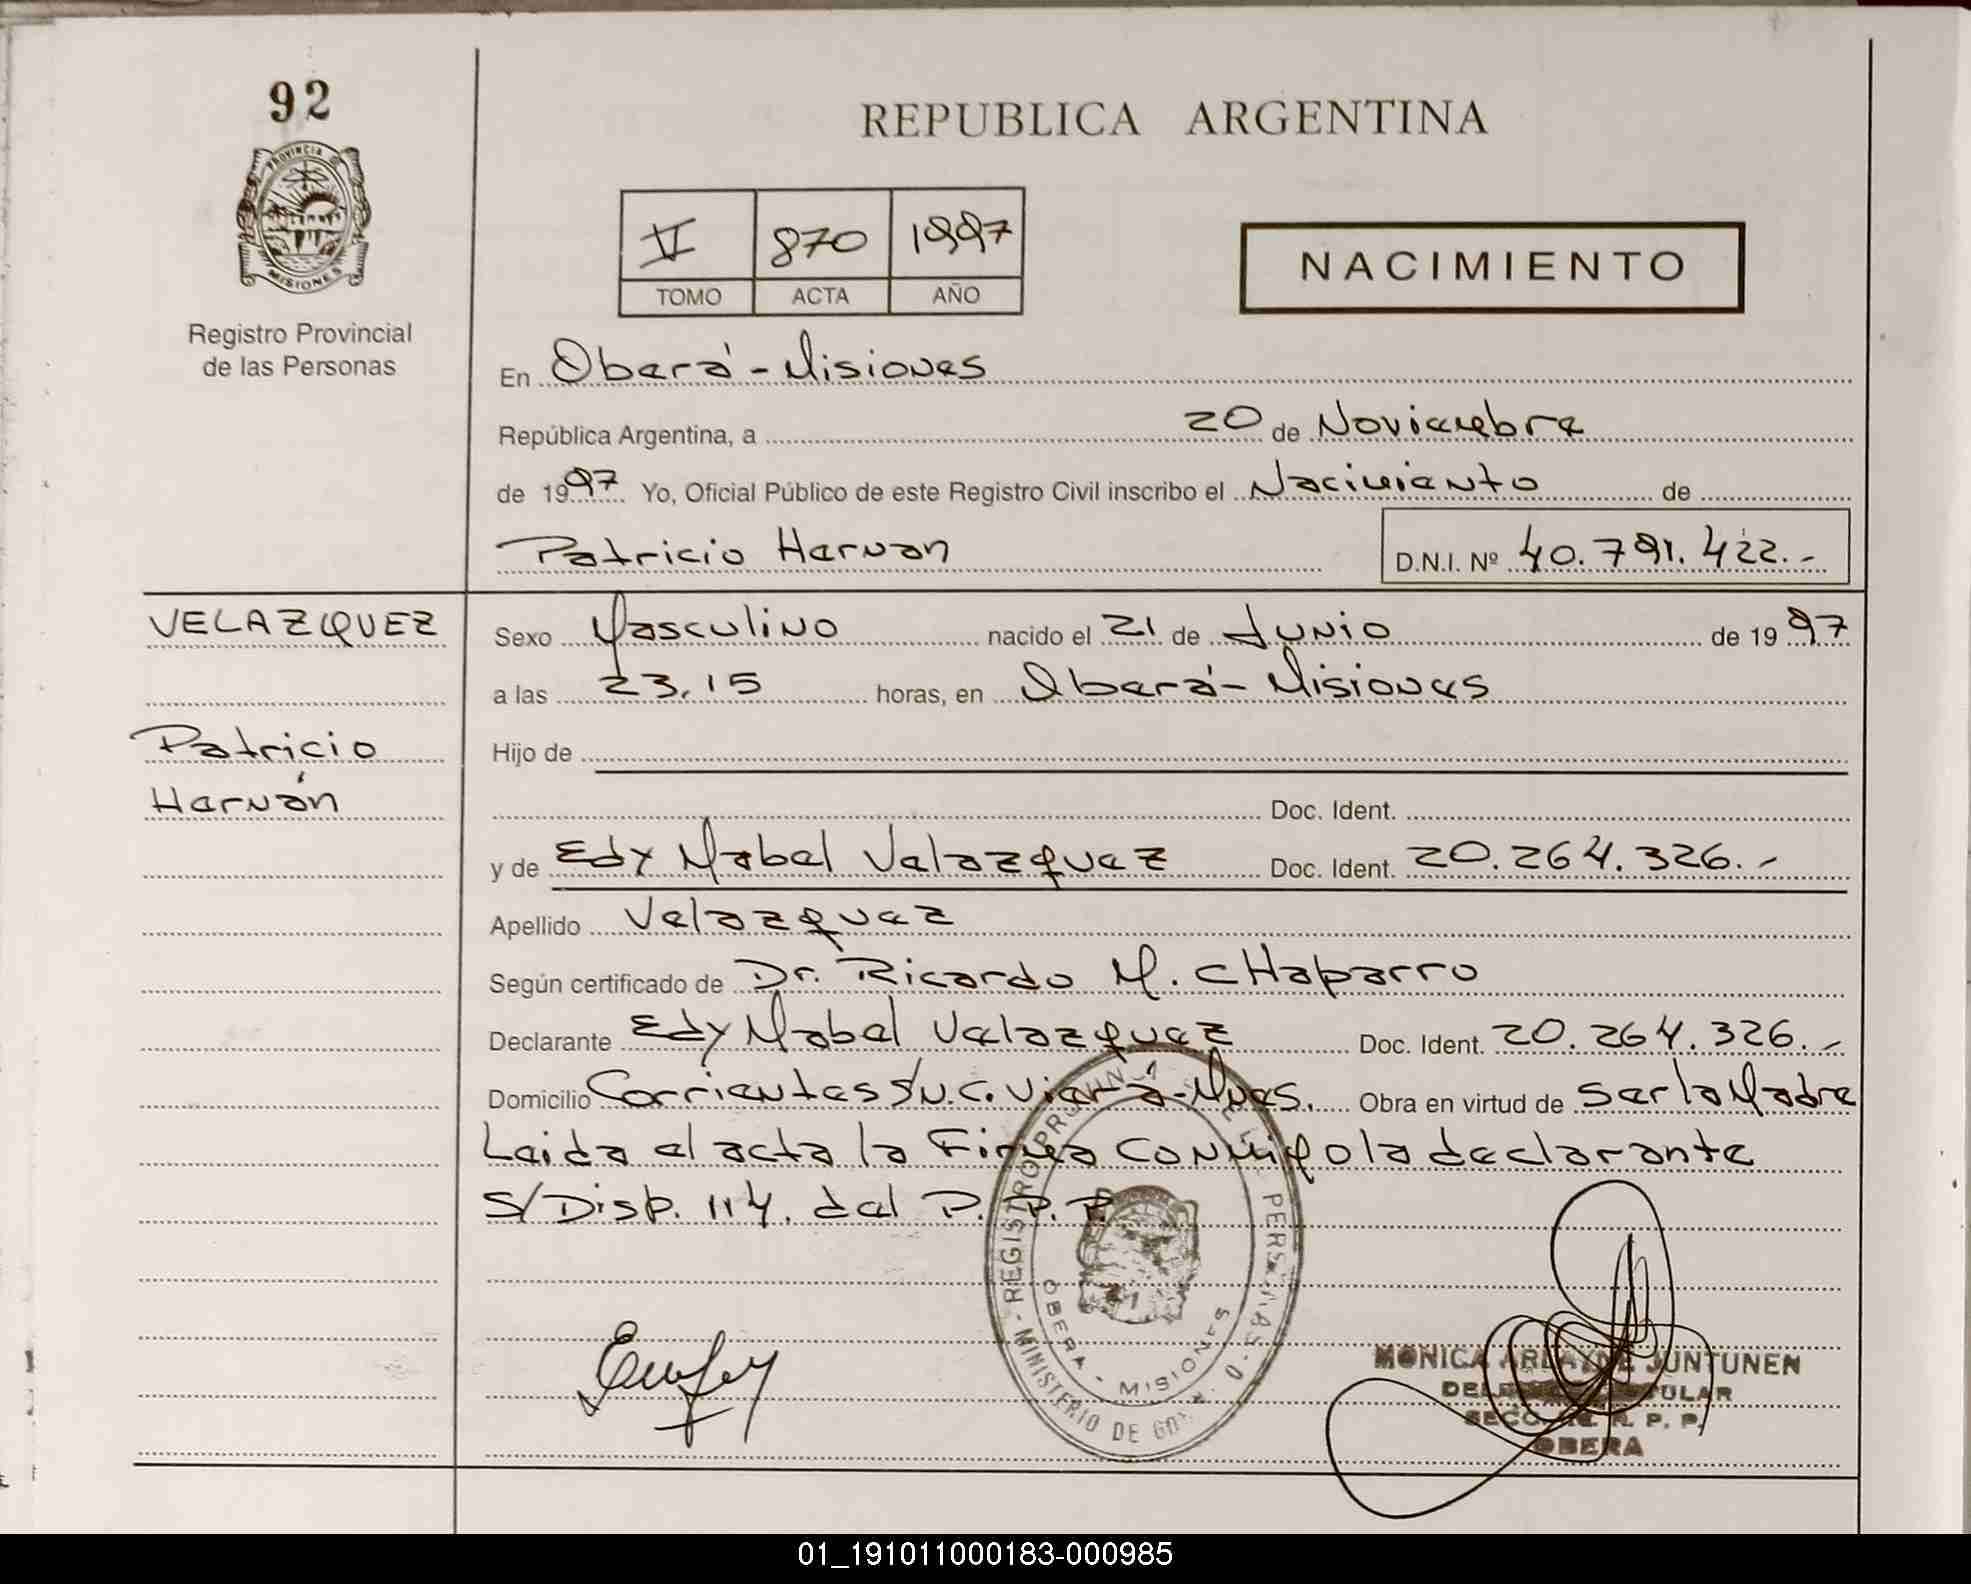 92
PROVINCIA DE
MISIONES
Registro Provincial
de las Personas
REPUBLICA ARGENTINA
V 870 1997
TOMO ACTA AÑO
NACIMIENTO
En Oberá - Misiones
República Argentina, a 20 de Noviembre
de 1997 Yo, Oficial Público de este Registro Civil inscribo el Nacimiento de
Patricio Hernan D.N.I. Nº 40.791.422.-
VELAZQUEZ
Patricio
Hernán
Sexo Masculino nacido el 21 de Junio de 1997
a las 23.15 horas, en Oberá - Misiones
Hijo de
Doc. Ident.
y de Edy Mabel Velazquez Doc. Ident. 20.264.326.-
Apellido Velazquez
Según certificado de Dr. Ricardo M. CHaparro
Declarante Edy Mabel Velazquez Doc. Ident. 20.264.326.-
Domicilio Corrientes S/N.C. Viera - Mnes. Obra en virtud de ser la Madre
Leida el acta la Firma conmigo la declarante
S/Disp. 114. del R.P.P.
REGISTRO PROVINCIAL DE LAS PERSONAS
MINISTERIO DE GOB.
OBERA - MISIONES
MONICA JUNTUNEN
TITULAR
SECC. R. P. P.
OBERA
01_191011000183-000985